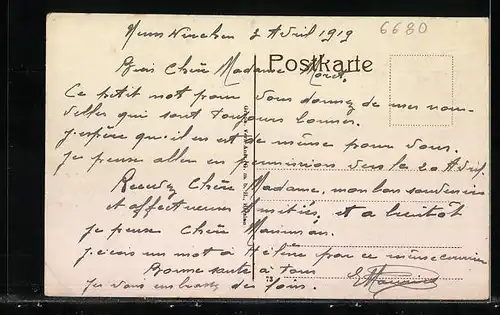 2 Avril 1919
6680
Postkarte
Bien Chère Madame Moret,
Ce petit mot pour vous donner de mes nou-
velles qui sont toujours bonnes.
J'espère qu'il en est de même pour vous.
Je pense aller en permission vers le 20 Avril.
Recevez Chère Madame, mon bon souvenir
et affectueuses Amitiés, et a bientôt
je pense Chère
J'écris un mot à Hélène par ce même courrier
Bonne santé à tous
Je vous embrasse des fois.
73